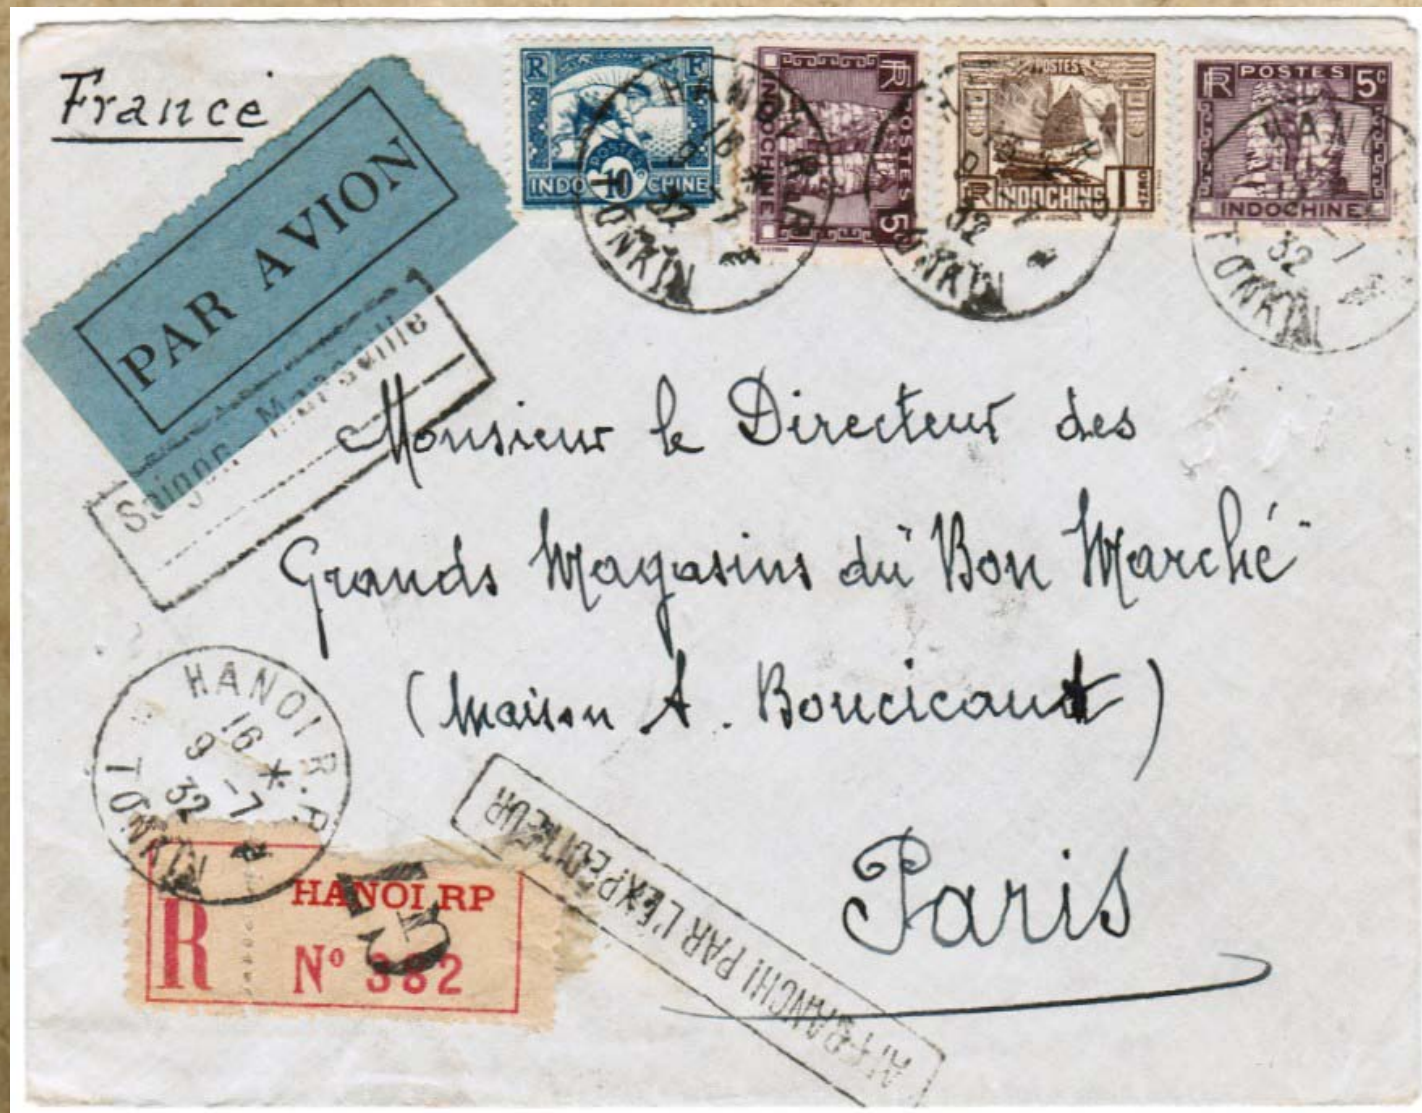 France
PAR AVION
Saigon Marseille
R F
POSTES
10
INDOCHINE
RF POSTES 5c
INDOCHINE
POSTES
RF INDOCHINE 1
RF POSTES 5c
INDOCHINE
HANOI R.P.
16 *
9 -7
32
TONKIN
HANOI
32 -7
TONKIN
Monsieur le Directeur des
Grands Magasins du "Bon Marché"
(Maison A. Boucicaut)
Paris
HANOI R.P.
16 *
9 -7
32
TONKIN
R HANOI RP
N° 382
AFFRANCHI PAR L'EXPÉDITEUR